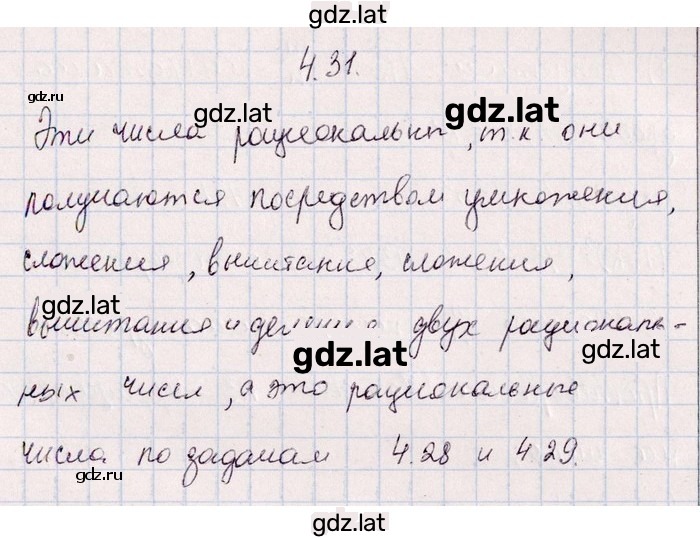 gdz.lat
4.31.
gdz.ru gdz.lat gdz.lat
Эти числа рациональны, т.к они
получаются посредством умножения,
сложения, вычитание, сложения,
gdz.lat
вычитания и деления двух рациональ-
gdz.lat gdz.lat
ных чисел, а это рациональные
числа по задачам 4.28 и 4 29.
gdz.ru gdz.lat
gdz.lat